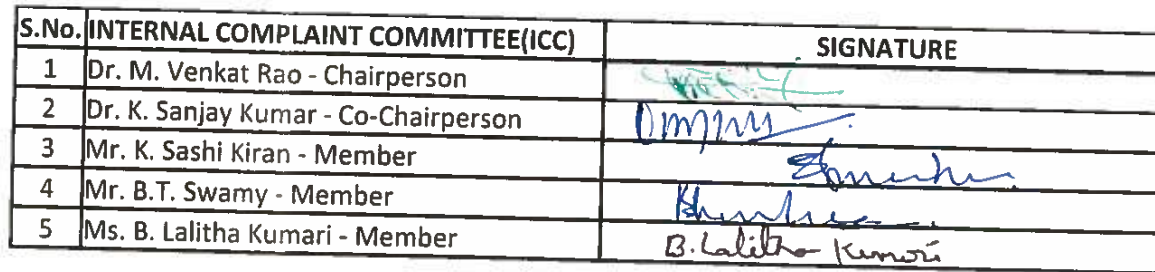 S.No. INTERNAL COMPLAINT COMMITTEE(ICC) SIGNATURE
1 Dr. M. Venkat Rao - Chairperson
2 Dr. K. Sanjay Kumar - Co-Chairperson
3 Mr. K. Sashi Kiran - Member
4 Mr. B.T. Swamy - Member
5 Ms. B. Lalitha Kumari - Member B. Lalitha Kumari